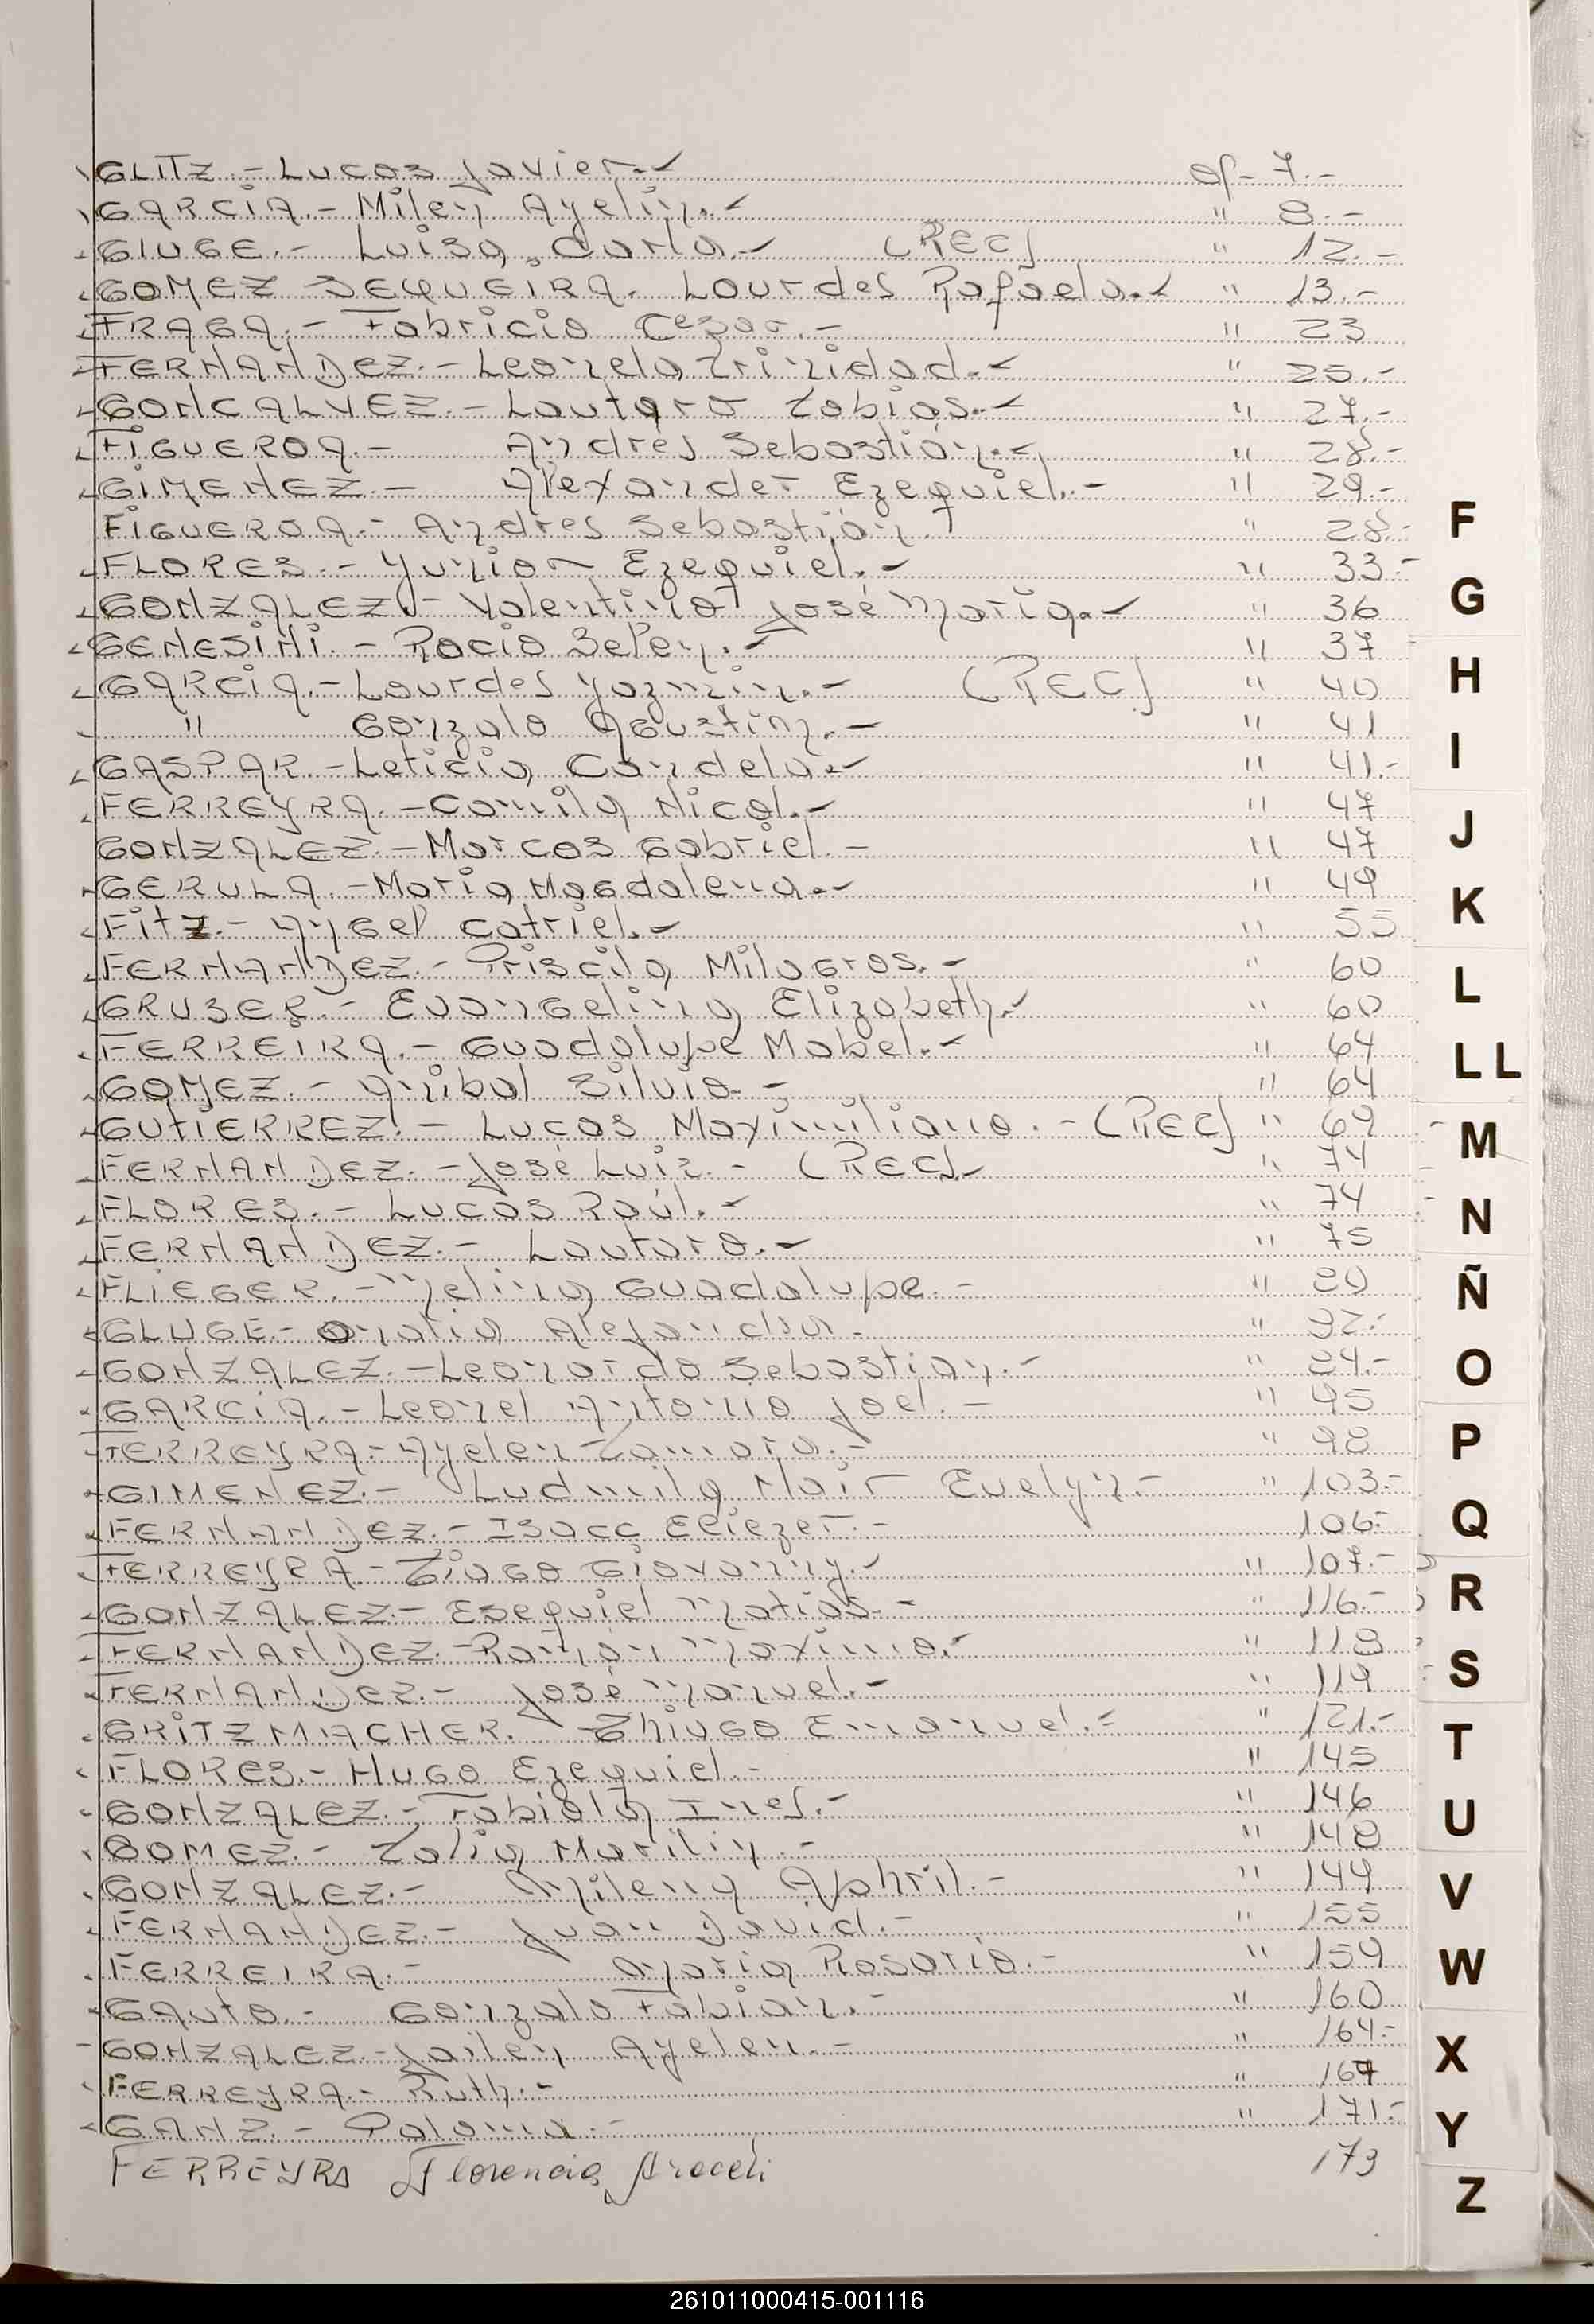 GLITZ.- Lucas Javier.- af- 7.-
GARCIA.- Milen Ayelin.- " 8.-
GLUGE.- Luisa, Carla.- (REC) " 12.-
GOMEZ SEQUEIRA. Lourdes Rafaela.- " 13.-
FRAGA.- Fabricio Cesar.- " 23
FERNANDEZ.- Leonela Trinidad.- " 25.-
GONCALVEZ.- Lautaro Tobias.- " 27.-
FIGUEROA.- Andrés Sebastián.- " 28.-
GIMENEZ.- Alexander Ezequiel.- " 29.-
FIGUEROA.- Andres Sebastián. " 28.-
FLORES.- Yunior Ezequiel.- " 33.-
GONZALEZ.- Valentino José Maria.- " 36
GENESINI.- Rocio Belen.- " 37
GARCIA.- Lourdes Yazmin.- (REC) " 40
" Gonzalo Agustin.- " 41
GASPAR.- Leticia Candela.- " 41.-
FERREYRA.- Camila Nicol.- " 47
GONZALEZ.- Marcos Gabriel.- " 47
GERULA.- Maria Magdalena.- " 49
Fitz.- Angel Catriel.- " 55
FERNANDEZ.- Priscila Milagros.- " 60
GRUBER.- Evangelina Elizabeth.- " 60
FERREIRA.- Guadalupe Mabel.- " 64
GOMEZ.- Anibal Silvio.- " 64
GUTIERREZ.- Lucas Maximiliano.- (REC) " 69
FERNANDEZ.- José Luis.- (REC)- " 74
FLORES.- Lucas Raúl.- " 74
FERNANDEZ.- Lautaro.- " 75
FLIEGER.- Melina Guadalupe.- "
GLUGE.- Maria Alejandra. "
GONZALEZ.- Leonardo Sebastian.- "
GARCIA.- Leonel Antonio Joel.- " 95
FERREYRA.- Ayelen Tamara.- " 98
GIMENEZ.- Ludmila Nair Evelyn.- " 103.-
FERNANDEZ.- Isacc Eliezer.- 106.-
FERREYRA.- Tiago Giovanny.- " 107.-
GONZALEZ.- Esequiel Matias.- " 116.-
FERNANDEZ.- Roman Maximo.- " 118
FERNANDEZ.- José Manuel.- " 119
GRITZMACHER. Thiago Emanuel.- " 121.-
FLORES.- Hugo Ezequiel.- " 145
GONZALEZ.- Fabiola Ines.- " 146
GOMEZ.- Marilin.- " 148
GONZALEZ.- Milena Abhril.- " 149
FERNANDEZ.- Juan David.- " 155
FERREIRA.- Maria Rosario.- " 159
GAUTO.- Gonzalo Fabian.- " 160
GONZALEZ.- Jailen Ayelen.- " 164.-
FERREYRA.- Ruth.- " 167
GANZ.- Paloma.- " 171.-
FERREYRA Florencia Araceli 173
F
G
H
I
J
K
L
LL
M
N
Ñ
O
P
Q
R
S
T
U
V
W
X
Y
Z
261011000415-001116